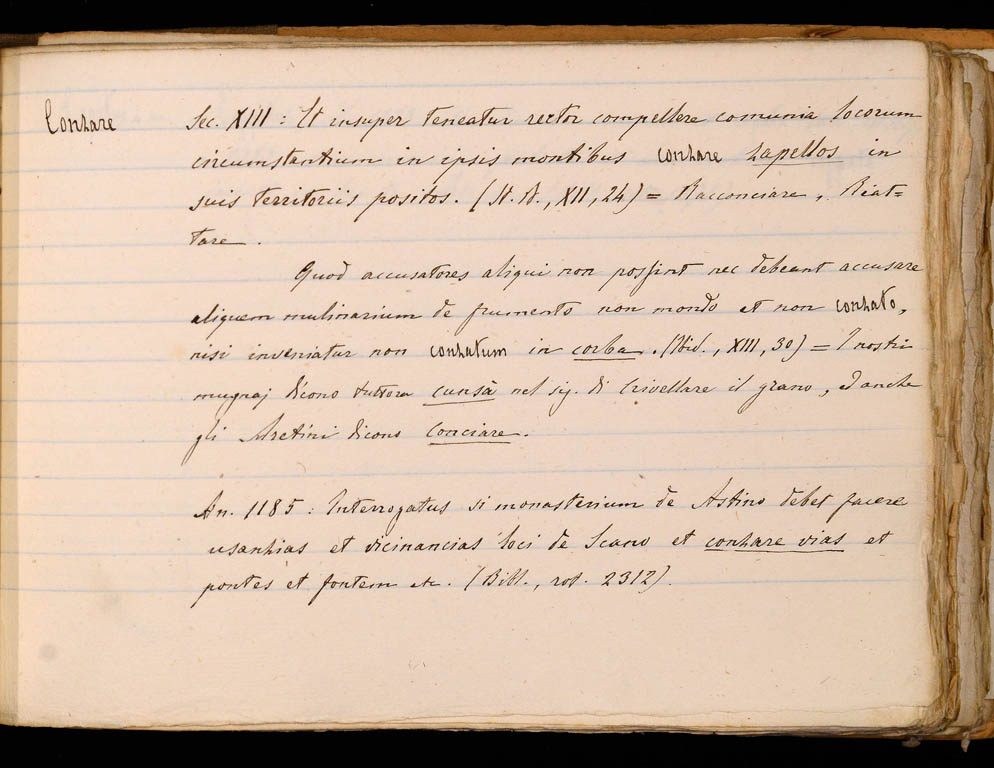 Conzare
Sec. XIII : Et insuper teneatur rector compellere comunia locorum
circumstantium in ipsis montibus conzare zapellos in
suis territoriis positos. (St. B., XII, 24) = Racconciare, Riat=
tare.
Quod accusatores aliqui non possint nec debeant accusare
aliquem mulinarium de frumento non mondo et non conzato,
nisi inveniatur non conzatum in corba. (Ibid., XIII, 30) = I nostri
mugnaj dicono tuttora cunsà nel sig. di crivellare il grano, ed anche
gli Aretini dicono Conciare.
An. 1185 : Interrogatus si monasterium de Astino debet facere
usanzias et vicinancias loci de Scano et conzare vias et
pontes et fontem etc. (Bibl., rot. 2312).